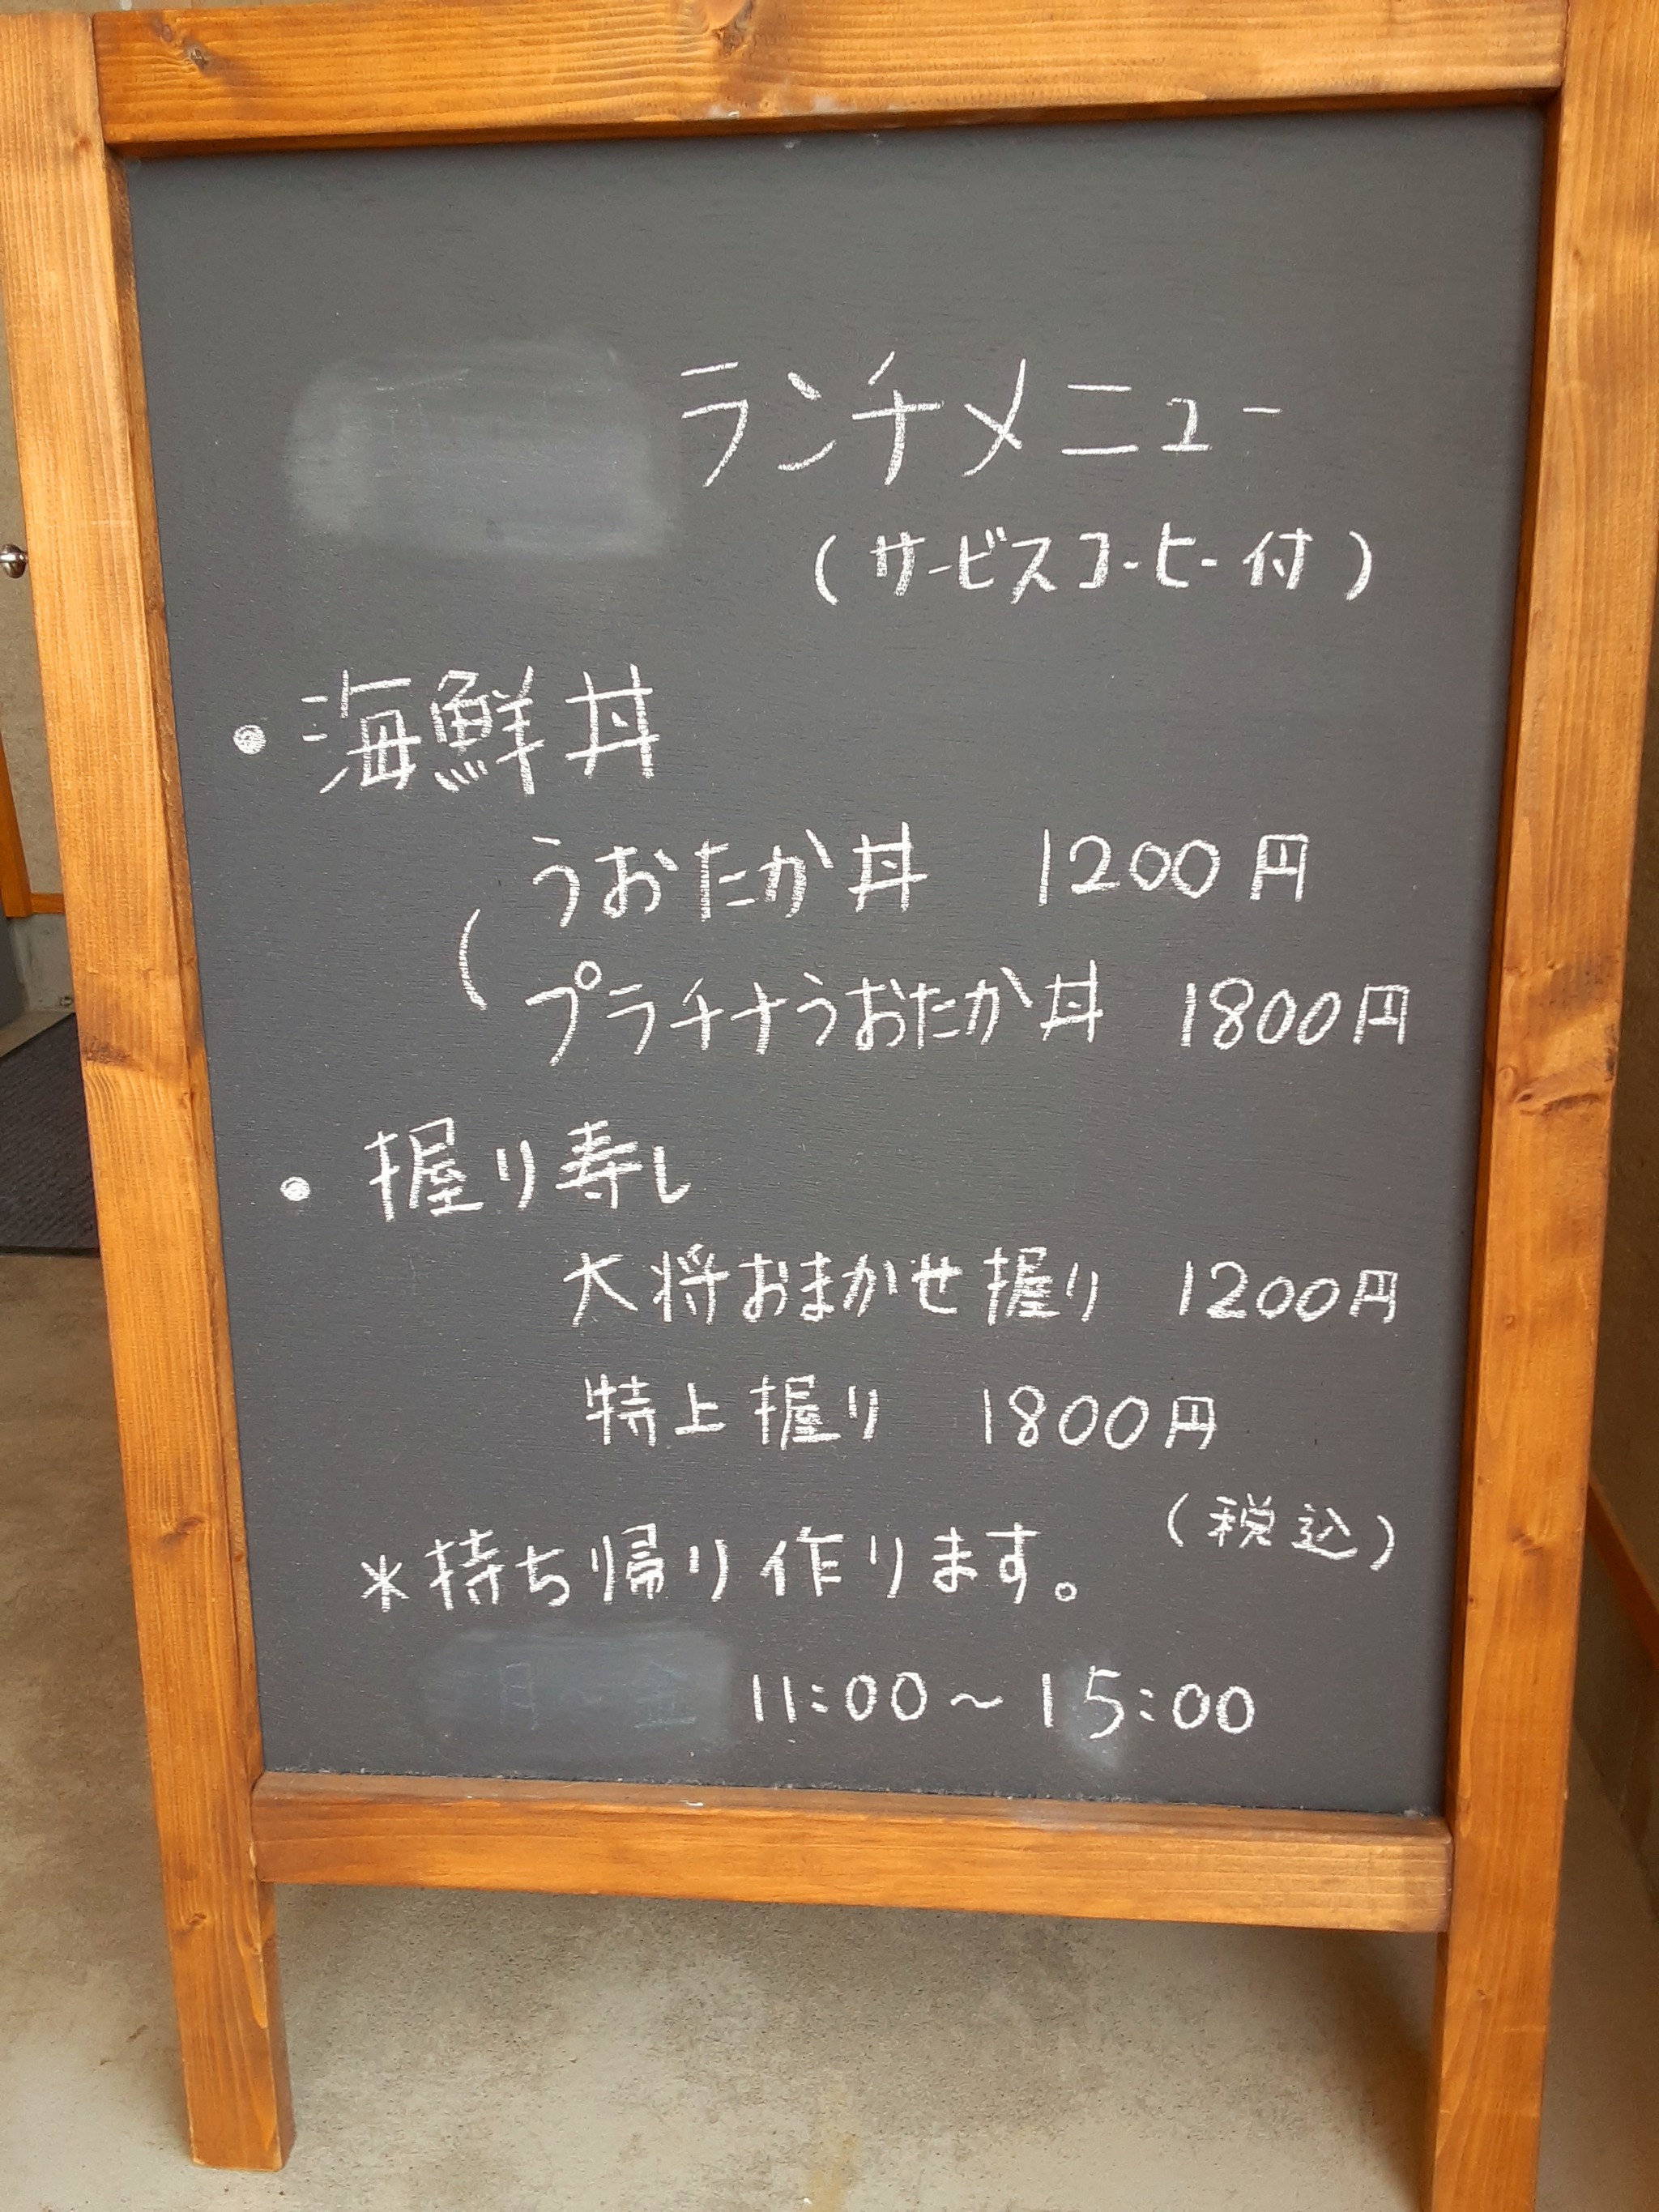 ランチメニュー
(サービスコーヒー付)
・海鮮丼
うおたか丼 1200円
プラチナうおたか丼 1800円
・握り寿し
大将おまかせ握り 1200円
特上握り 1800円
(税込)
*持ち帰り作ります。
11:00～15:00